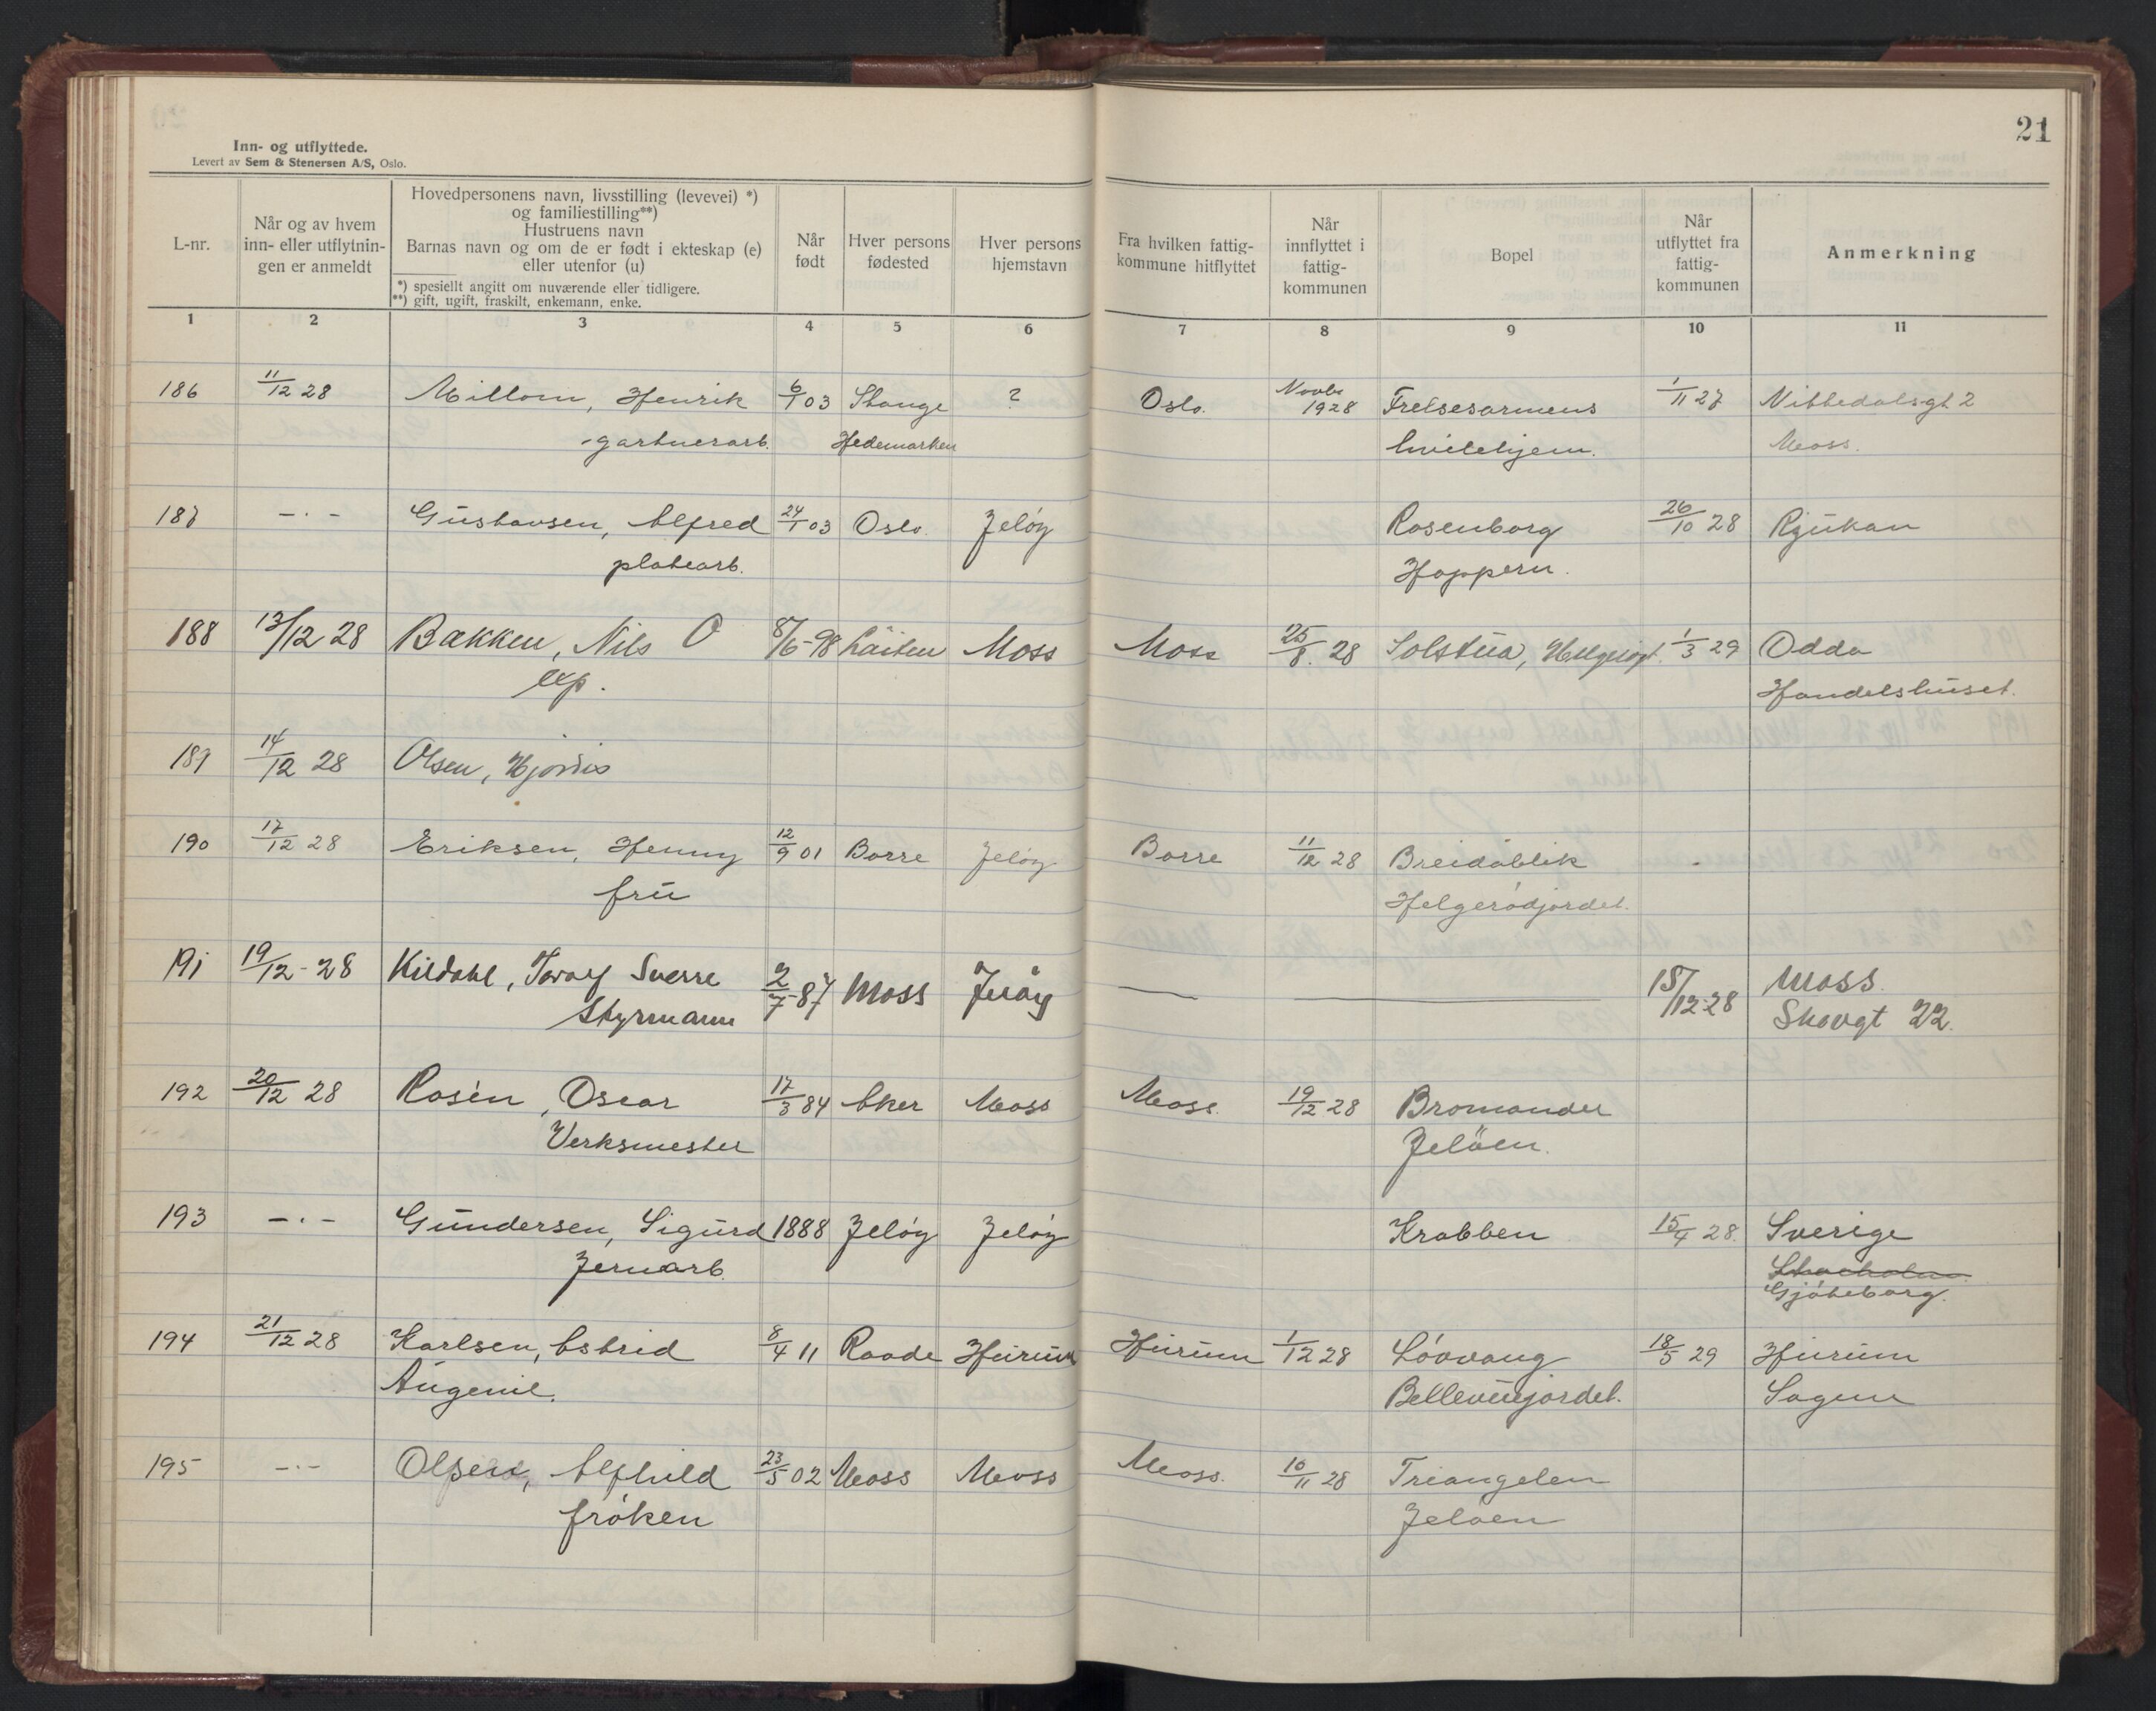 21
Inn- og utflyttede.
Levert av Sem & Stenersen A/S, Oslo.
L-nr.
Når og av hvem
inn- eller utflytnin-
gen er anmeldt
Hovedpersonens navn, livsstilling (levevei) *)
og familiestilling**)
Hustruens navn
Barnas navn og om de er født i ekteskap (e)
eller utenfor (u)
*) spesiellt angitt om nuværende eller tidligere.
**) gift, ugift, fraskilt, enkemann, enke.
Når
født
Hver persons
fødested
Hver persons
hjemstavn
Fra hvilken fattig-
kommune hitflyttet
Når
innflyttet i
fattig-
kommunen
Bopel
Når
utflyttet fra
fattig-
kommunen
Anmerkning
1 2 3 4 5 6 7 8 9 10 11
186 11/12 28 Millom, Henrik 6/1 03 Stange ? Oslo. Novbr 1928 Frelsesarmens 1/11 27 Nittedalsgt 2
gartnerarb. Hedemarken hvilehjem. Moss.
187 -.- Gustavsen, Alfred 24/1 03 Oslo. Jeløy Rosenborg 26/10 28 Rjukan
platearb. Hoppern.
188 13/12 28 Bakken, Nils O 8/6-98 Løiten Moss Moss 25/8. 28 Solstua, 1/3 29 Odda
Exp. Handelshuset.
189 14/12 28 Olsen, Hjørdis
190 17/12 28 Eriksen, Henny 12/9 01 Borre Jeløy Borre 11/12 28 Breidablik -
fru Helgerødjordet.
191 19/12-28 Kildahl, Sverre 2/7-87 Moss Jeløy — — 15/12-28 Moss.
Styrmann Skovgt 22.
192 20/12 28 Rosén, Oscar 17/3 84 Aker Moss Moss. 19/12 28 Bromander
Verksmester Jeløen.
193 -.- Gundersen, Sigurd 1888 Jeløy Jeløy Krabben 15/4 28. Sverige
Jernarb. Stockholm
Gjøteborg.
194 21/12 28 Karlsen, Astrid 8/4 11 Raade Hurum Hurum 1/12 28 Løvvang 18/5 29 Hurum
Augenie. Bellevuejordet. Sagen
195 -.- Olsen, Alfhild 23/5 02 Moss Moss Moss. 10/11 28 Triangelen
frøken Jeløen